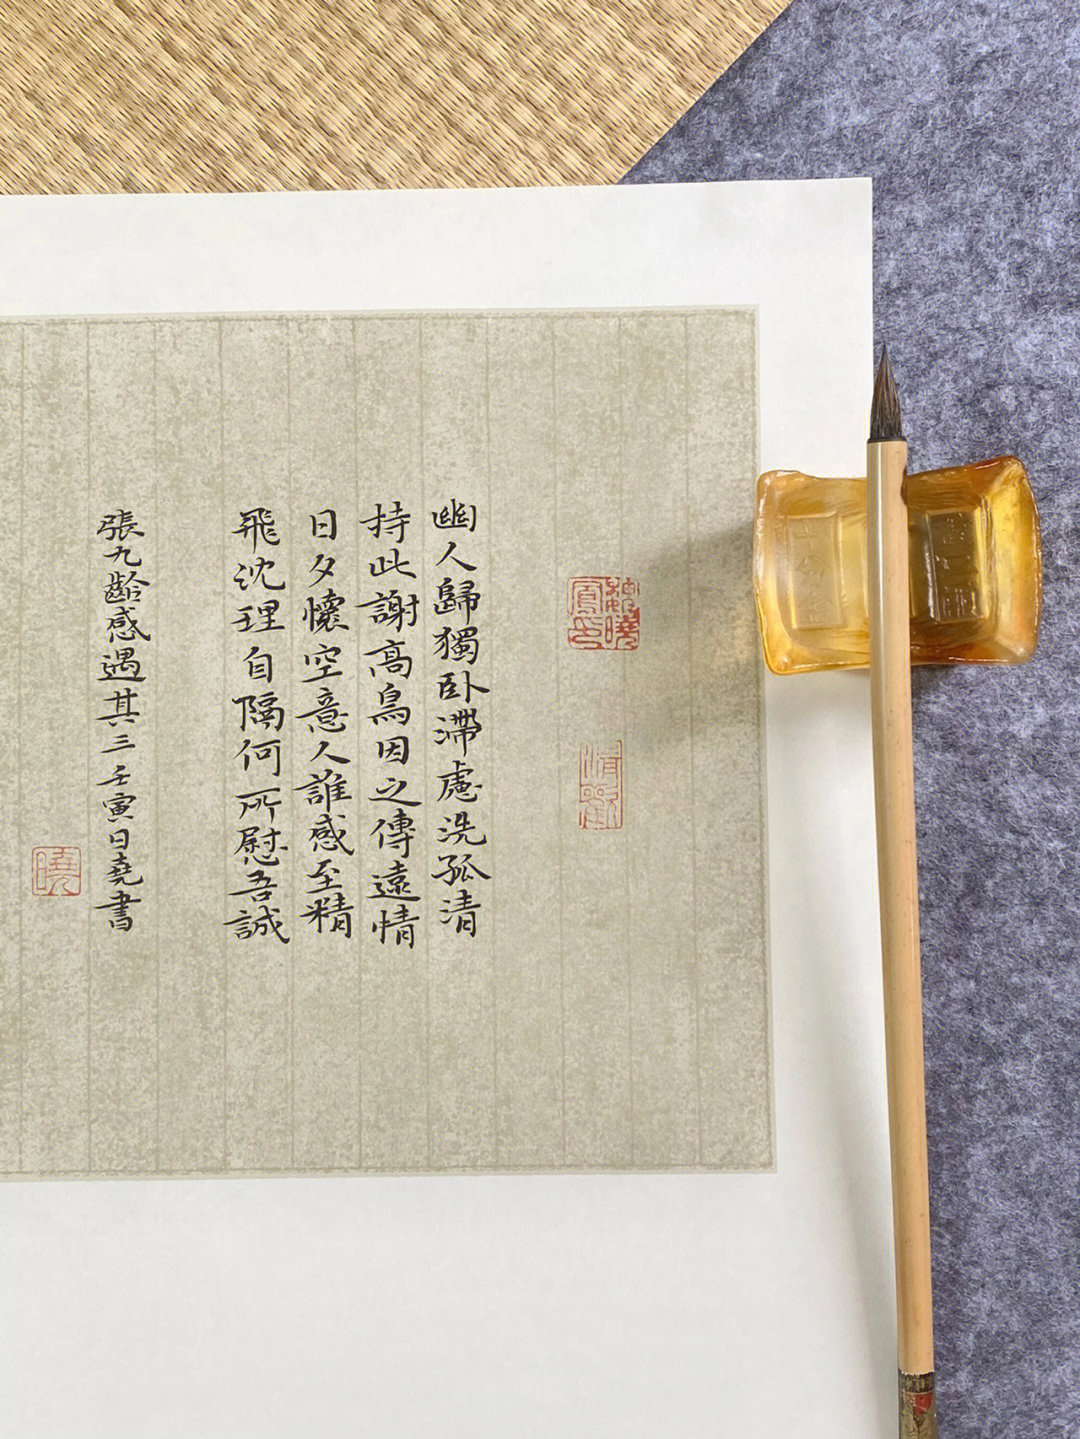 幽人歸獨卧滯慮洗孤清
持此謝高鳥因之傳遠情
日夕懷空意人誰感至精
飛沈理自隔何所慰吾誠
張九齡感遇其三壬寅日堯書
曉